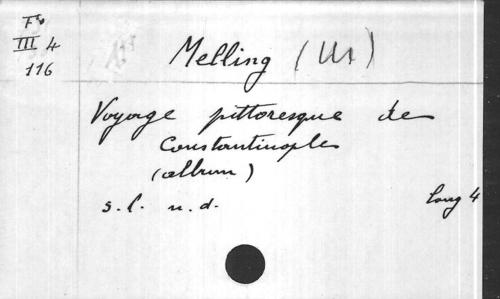 Fo
III 4
116
Melling (M)
Voyage pittoresque de
Constantinople
(album)
s.l. n.d. long 4